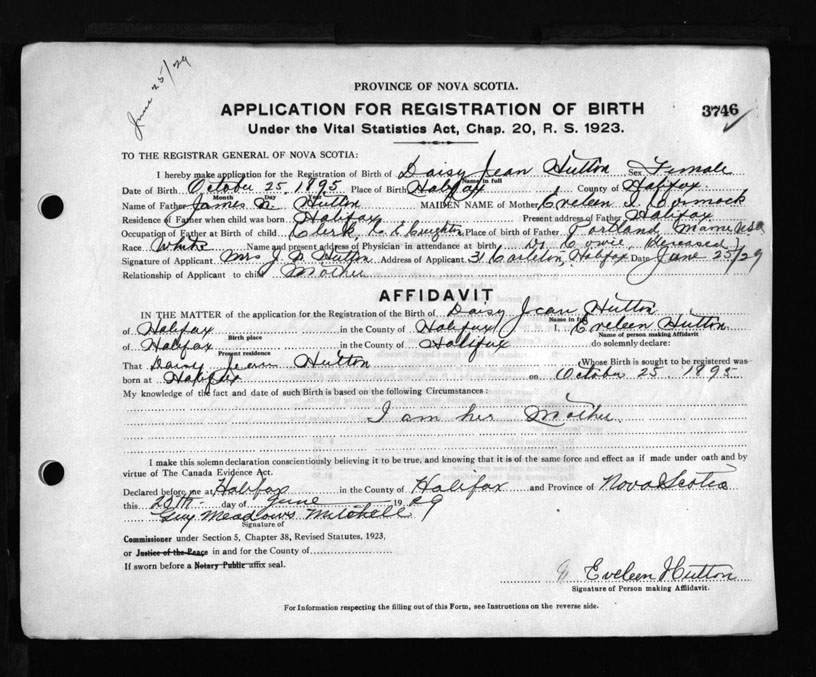 June 25/29
PROVINCE OF NOVA SCOTIA.
APPLICATION FOR REGISTRATION OF BIRTH
3746
Under the Vital Statistics Act, Chap. 20, R. S. 1923.
TO THE REGISTRAR GENERAL OF NOVA SCOTIA:
I hereby make application for the Registration of Birth of Daisy Jean Hutton Sex Female
Name in full
Date of Birth October 25, 1895 Place of Birth Halifax County of Halifax
Month Day Year
Name of Father James Hutton MAIDEN NAME of Mother Eveleen Cormack
Residence of Father when child was born Halifax Present address of Father Halifax
Occupation of Father at Birth of child Clerk, Creighton Place of birth of Father Portland, Maine USA
Race White Name and present address of Physician in attendance at birth Dr Cowie, (deceased)
Signature of Applicant Mrs J Hutton Address of Applicant 31 Carleton, Halifax Date June 25/29
Relationship of Applicant to child Mother
AFFIDAVIT
IN THE MATTER of the application for the Registration of the Birth of Daisy Jean Hutton
Name in full
of Halifax in the County of Halifax I, Eveleen Hutton
Birth place Name of person making Affidavit
of Halifax in the County of Halifax do solemnly declare:
Present residence
That Daisy Jean Hutton (Whose Birth is sought to be registered was
born at Halifax on October 25, 1895
My knowledge of the fact and date of such Birth is based on the following Circumstances:
I am her Mother
I make this solemn declaration conscientiously believing it to be true, and knowing that it is of the same force and effect as if made under oath and by
virtue of The Canada Evidence Act.
Declared before me at Halifax in the County of Halifax and Province of Nova Scotia
this day of June 1929
Guy Meadows Mitchell
Signature of
Commissioner under Section 5, Chapter 38, Revised Statutes, 1923,
or Justice of the Peace in and for the County of
If sworn before a Notary Public affix seal.
Eveleen Hutton
Signature of Person making Affidavit.
For Information respecting the filling out of this Form, see Instructions on the reverse side.